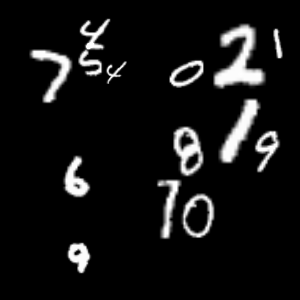 4
7 5 4 0 2 1
8 1 9
6 7 0
9